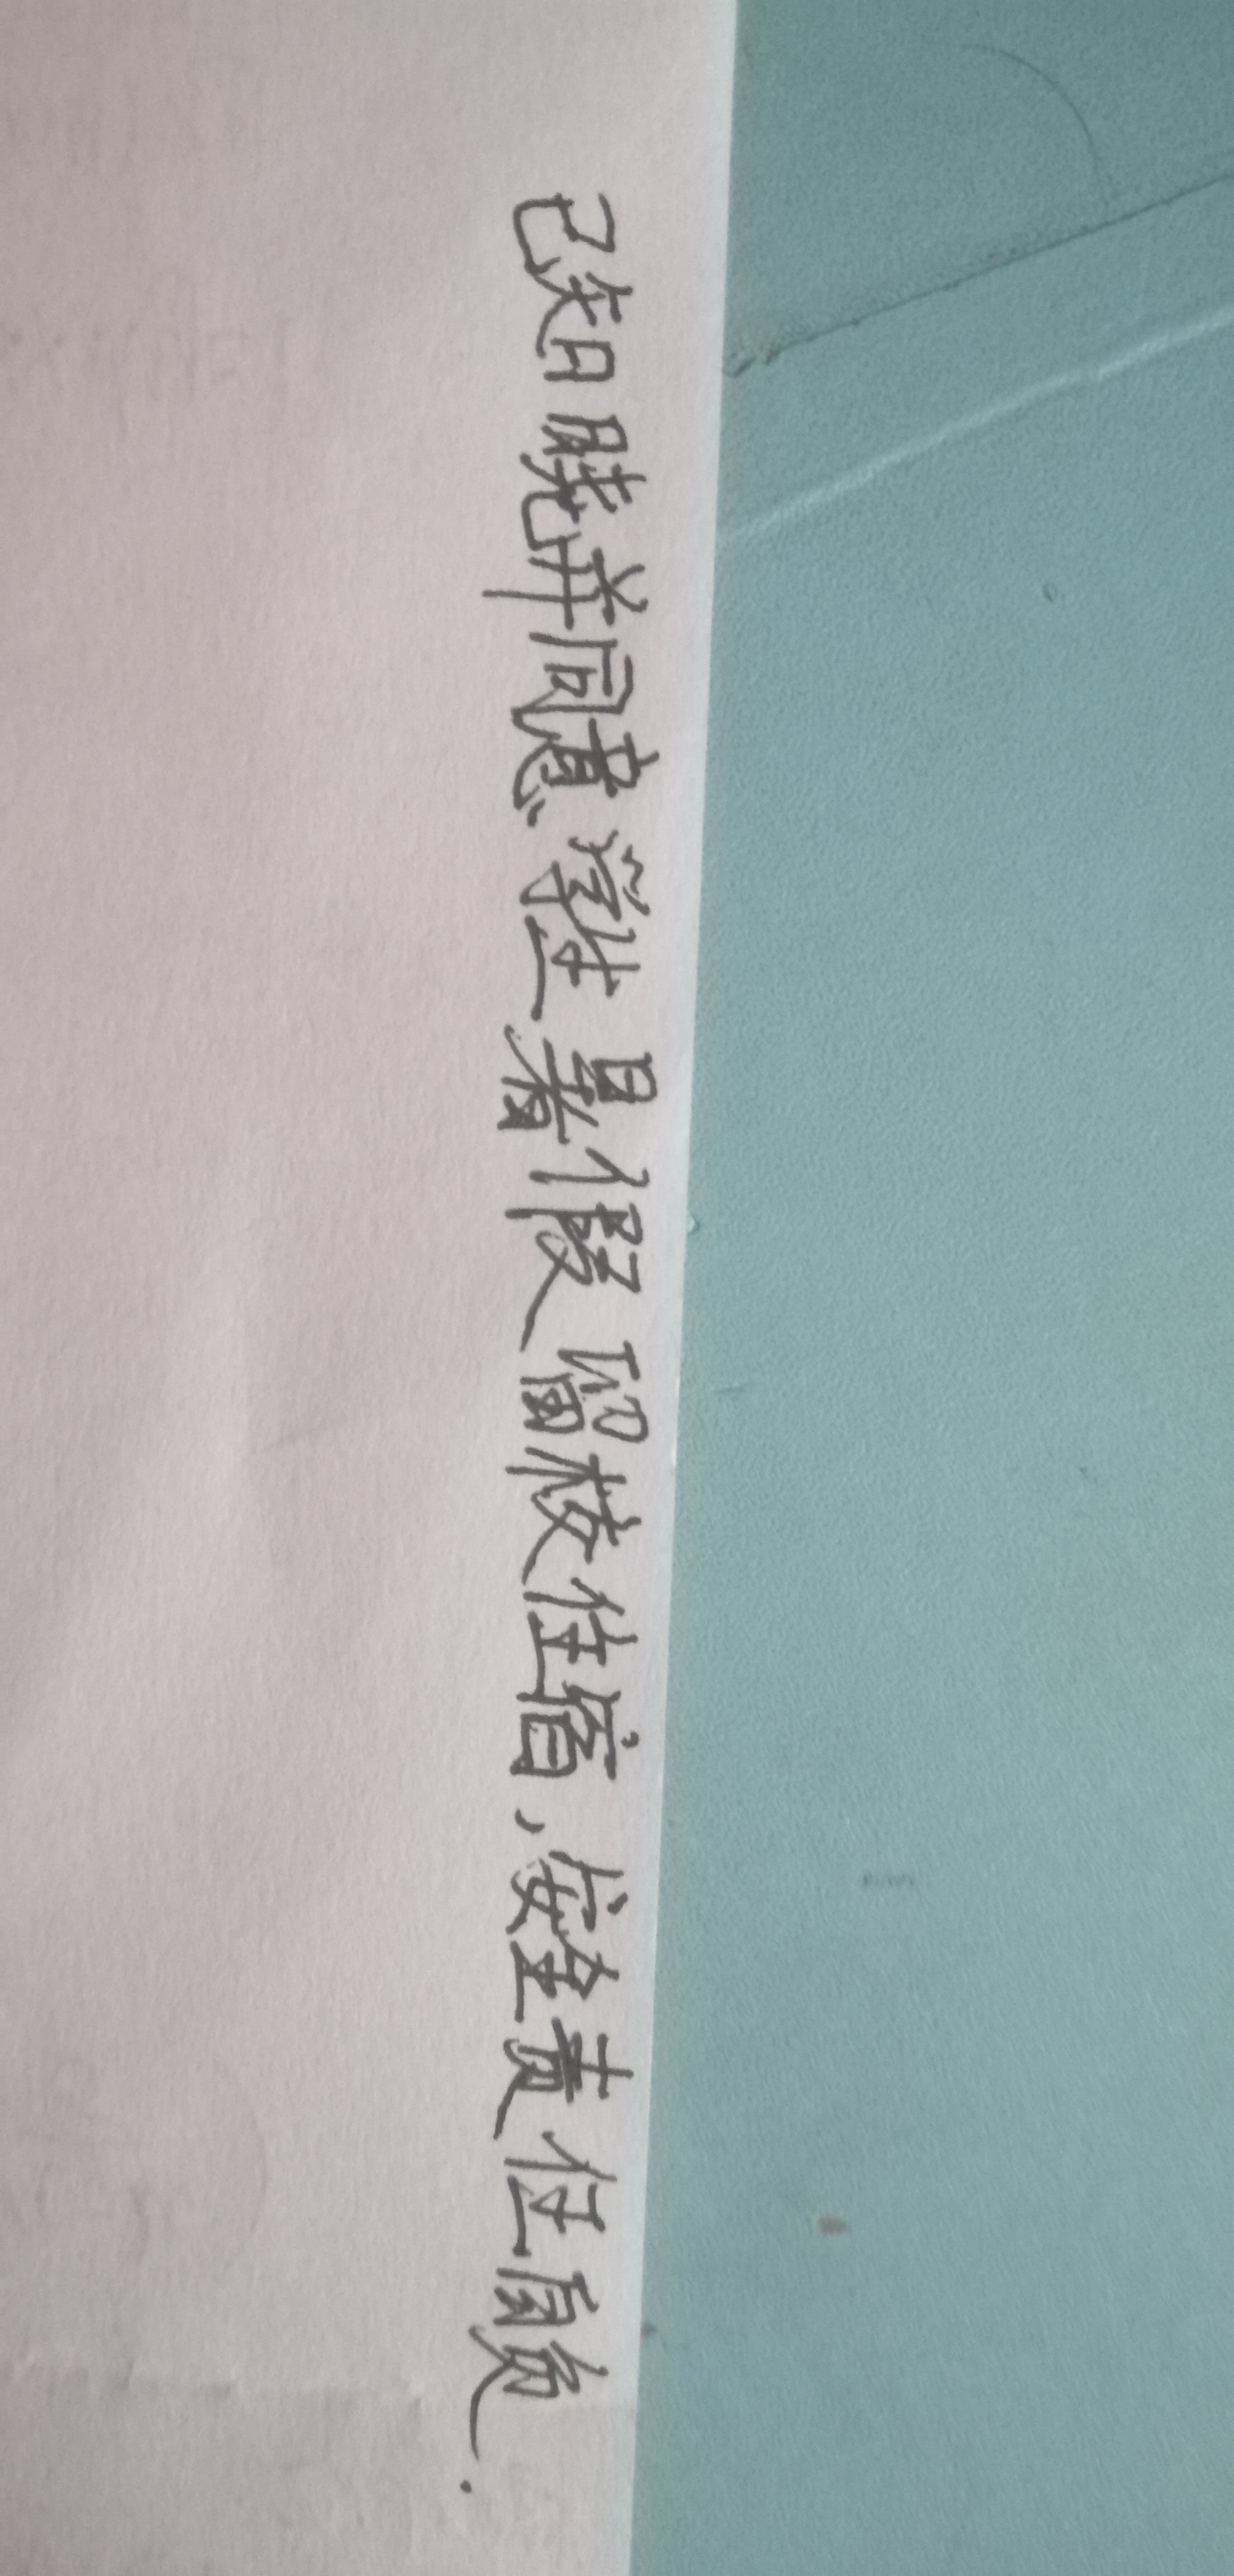 已知晓并同意学生暑假留校住宿,安全责任自负.